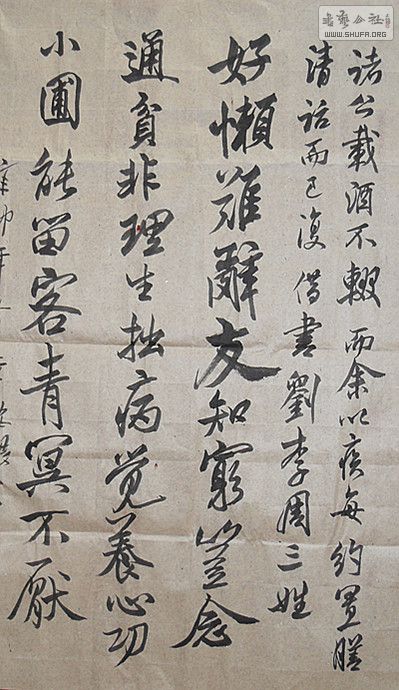 書藝公社
WWW.SHUFA.ORG
諸公載酒不輟而余以疾每約置膳
清話而已復借書劉李周三姓
好懶難辭友知窮豈念
通貧非理生拙病覺養心功
小圃能留客青冥不厭
辛卯年